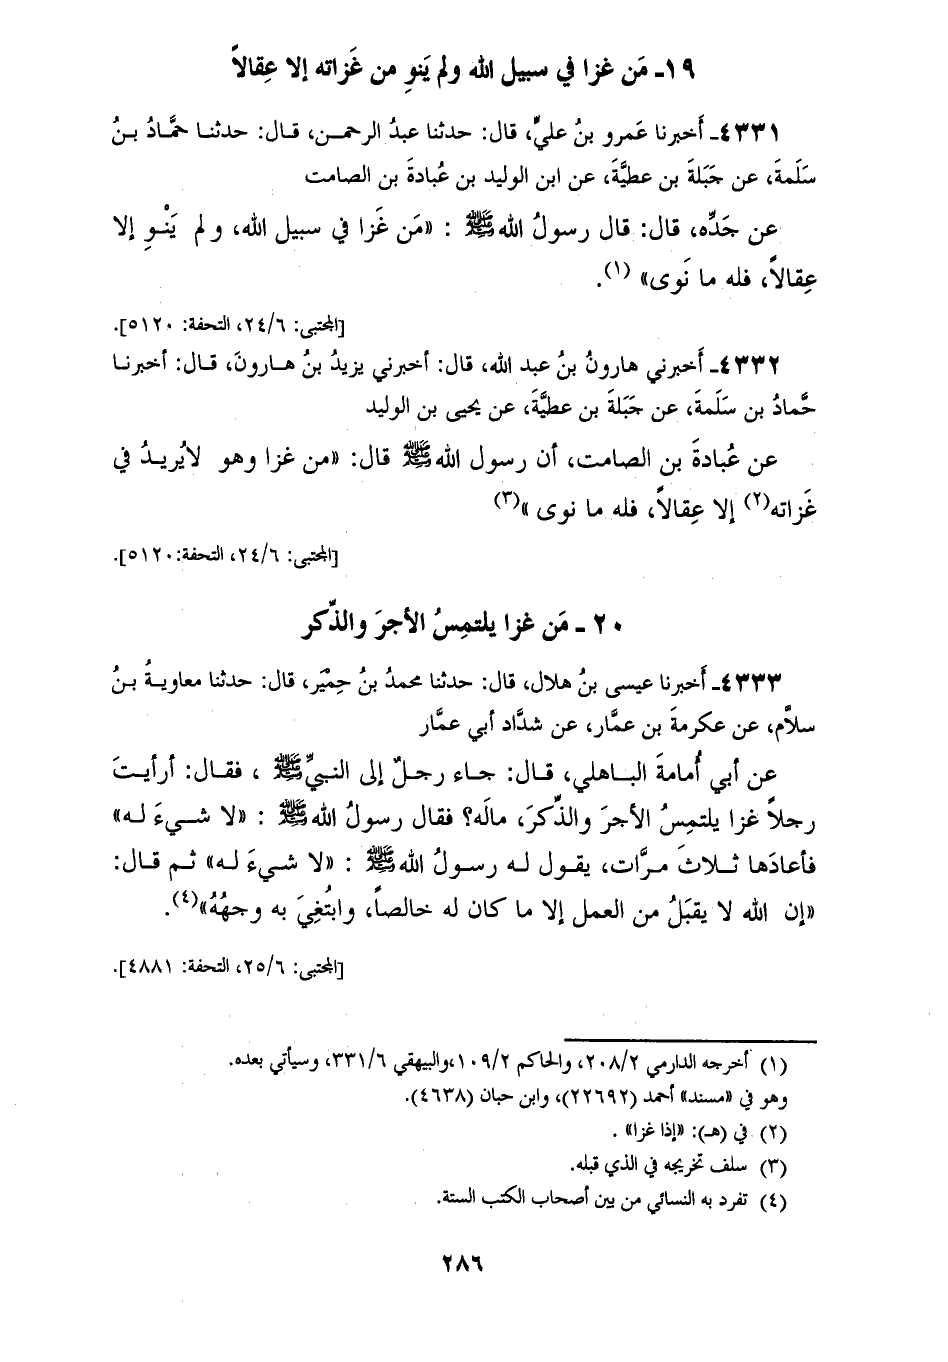 ١٩ـ مَن غزا في سبيل الله ولم يَنوِ من غَزاته إلا عِقالاً
٤٣٣١ـ أَخبرنا عَمرو بنُ عليٍّ، قال: حدثنا عبدُ الرحمن، قال: حدثنا حمَّادُ بنُ
سَلَمةَ، عن جَبَلةَ بن عطيَّةَ، عن ابن الوليد بن عُبادةَ بن الصامت
عن جَدِّه، قال: قال رسولُ الله ﷺ : «مَن غَزا في سبيل الله، ولم يَنْوِ إلا
عِقالاً، فله ما نَوى» (١).
[المجتبى: ٢٤/٦، التحفة: ٥١٢٠].
٤٣٣٢ـ أَخبرني هارونُ بنُ عبد الله، قال: أخبرني يزيدُ بنُ هارونَ، قال: أخبرنا
حَّمادُ بن سَلَمةَ، عن جَبَلةَ بن عطيَّةَ، عن يحيى بن الوليد
عن عُبادةَ بن الصامت، أن رسول الله ﷺ قال: «من غزا وهو لايُريدُ في
غَزاته(٢) إلا عِقالاً، فله ما نوى »(٣)
[المجتبى: ٢٤/٦، التحفة:٥١٢٠].
٢٠ ـ مَن غزا يلتمِسُ الأجرَ والذِّكر
٤٣٣٣ـ أَخبرنا عيسى بنُ هلال، قال: حدثنا محمدُ بنُ حِمْيَر، قال: حدثنا معاويةُ بنُ
سلاَّم، عن عكرمةَ بن عمَّار، عن شدَّاد أبي عمَّار
عن أبي أُمامةَ الباهلي، قال: جاء رجلٌ إلى النبيِّ ﷺ ، فقال: أرأيتَ
رجلاً غزا يلتمِسُ الأجرَ والذِّكرَ، مالَه؟ فقال رسولُ الله ﷺ : «لا شيءَ له»
فأعادَها ثلاثَ مرَّات، يقول له رسولُ الله ﷺ : «لا شيءَ له» ثم قال:
«إن الله لا يقبَلُ من العمل إلا ما كان له خالصاً، وابتُغِيَ به وجهُهُ»(٤).
[المجتبى: ٢٥/٦، التحفة: ٤٨٨١].
(١) أخرجه الدارمي ٢٠٨/٢، والحاكم ١٠٩/٢،والبيهقي ٣٣١/٦، وسيأتي بعده.
وهو في «مسند» أحمد (٢٢٦٩٢)، وابن حبان (٤٦٣٨).
(٢) في (هـ): «إذا غزا» .
(٣) سلف تخريجه في الذي قبله.
(٤) تفرد به النسائي من بين أصحاب الكتب الستة.
٢٨٦